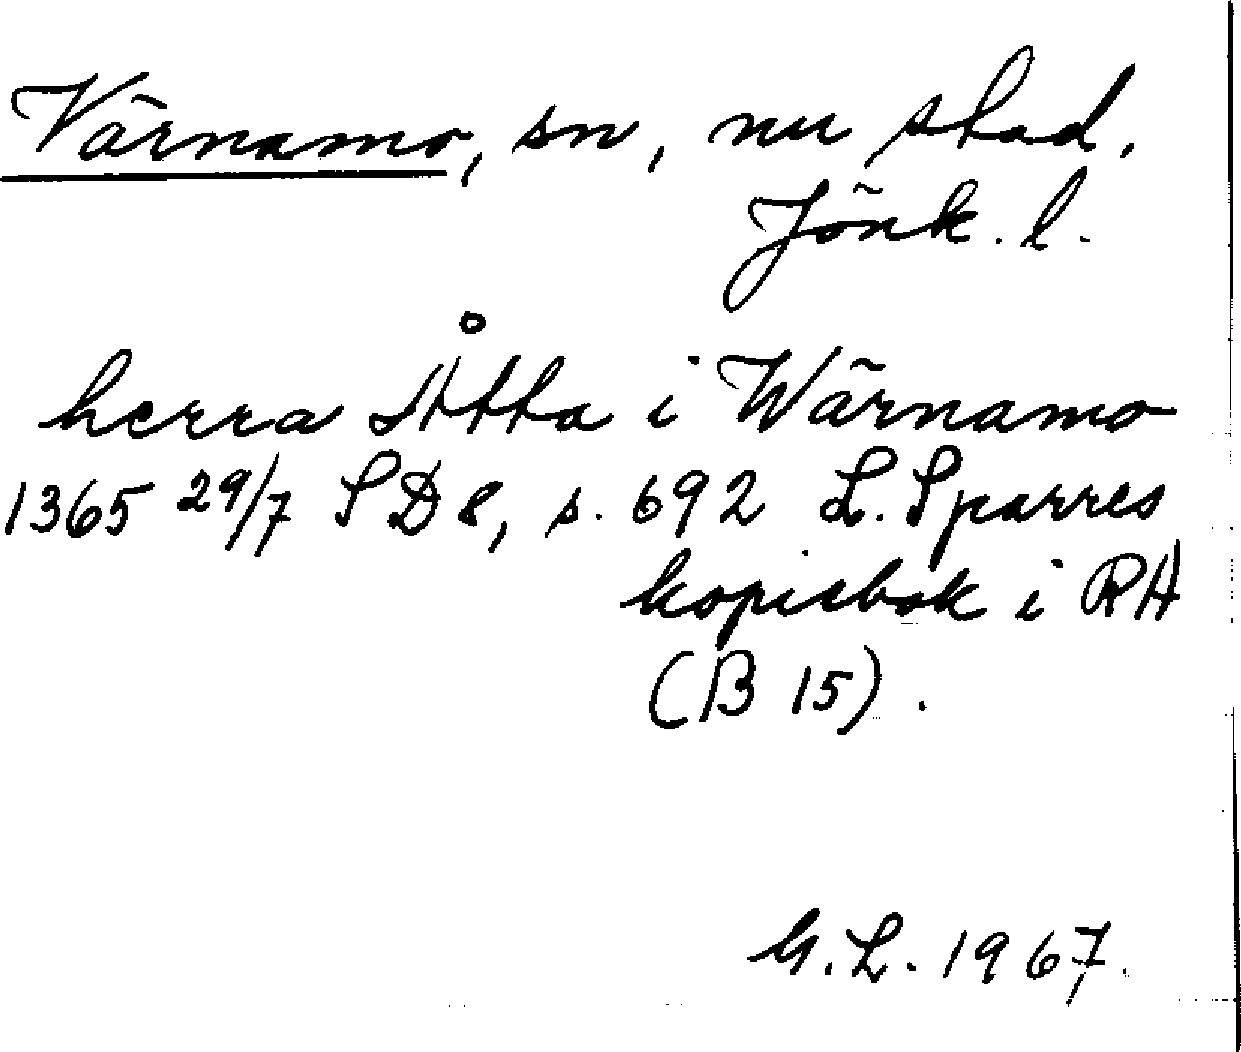 Värnamo, sn, nu stad,
Jönk. l.
herra Åtta i Wärnamo
1365 29/7 SD 8, s. 692 L. Sparres
kopiebok i RA
(B 15).
G.L. 1967.